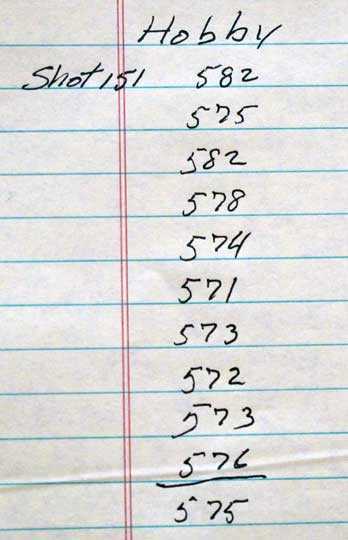 Hobby
Shot 151 582
575
582
578
574
571
573
572
573
576
575